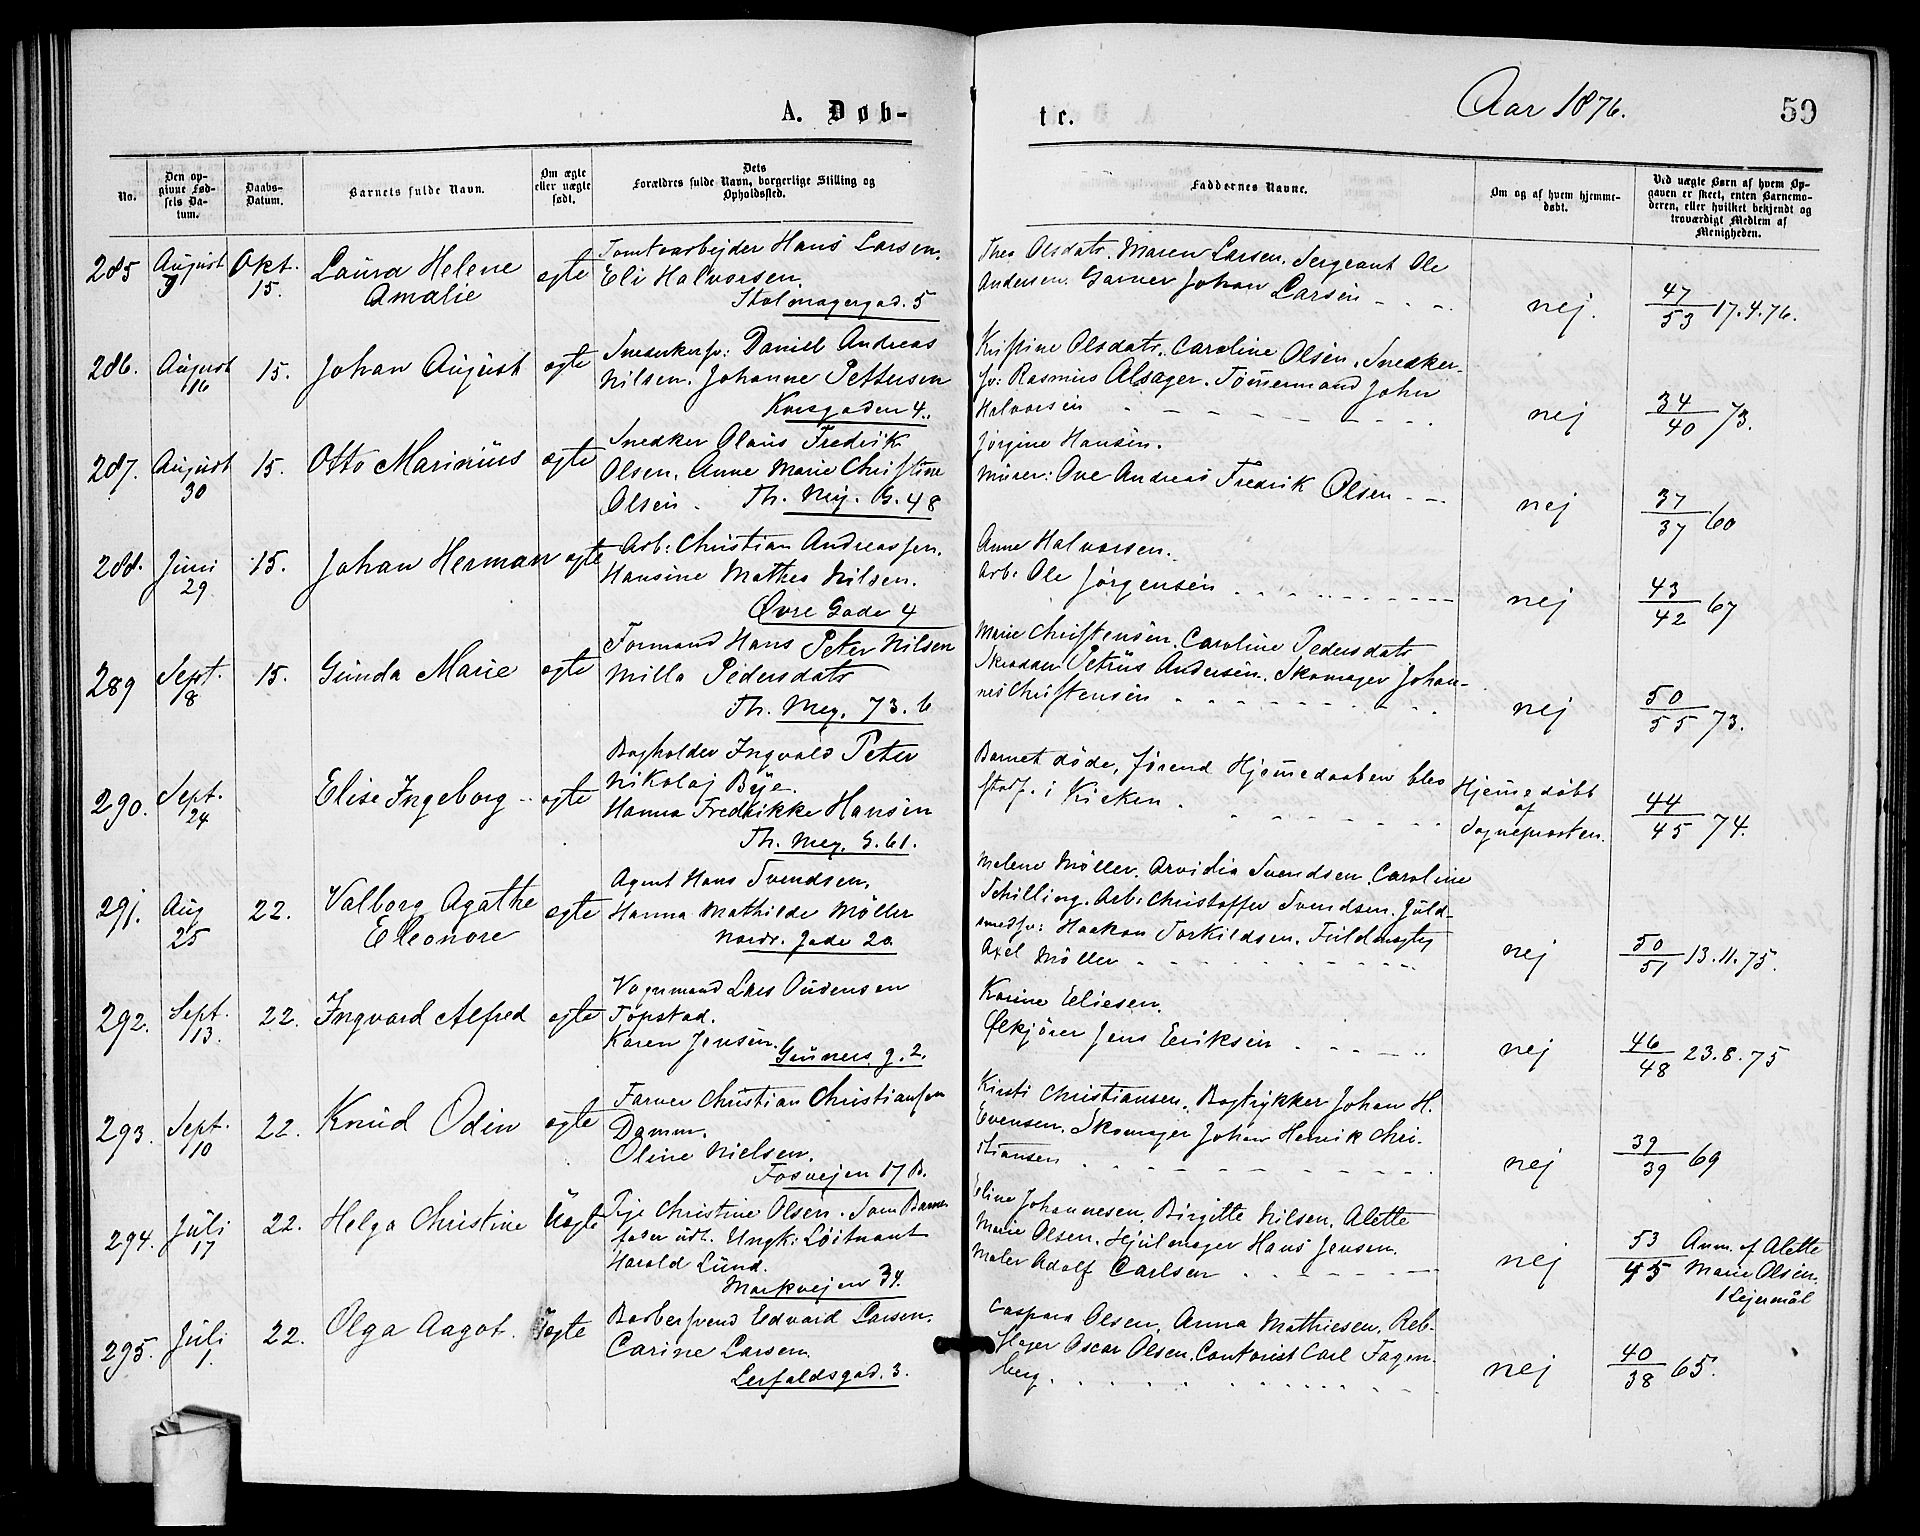 A. Døb-
te.
Aar 1876.
59
No.
Den op-
givne Fød-
sels Da-
tum.
Daabs-
Datum.
Barnets fulde Navn.
Om ægte
eller uægte
født.
Dets
Forældres fulde Navn, borgerlige Stilling og
Opholdssted.
Faddernes Navne.
Om og af hvem hjemme-
døbt.
Ved uægte Børn af hvem Op-
gaven er skeet, enten Barnemo-
deren, eller hvilket bekjendt og
troværdigt Medlem af
Menigheden.
285 August 9 Okt. 15. Laura Helene
Amalie
ægte
Tomtearbejder Hans Larsen.
Eli Halvorsen.
Stolmagergad. 5
Thea Olsdatr. Maren Larsen. Sergeant Ole
Andersen. Garver Johan Larsen
nej.
47/53 17.4.76.
286. August 16 15. Johan August
ægte
Snedkersv: Daniel Andreas
Nilsen. Johanne Pettersen
Korsgaden 4.
Kristine Olsdatr. Caroline Olsen. Snedker-
sv: Rasmus Alsager. Tømmermand Johan
Halvorsen
nej
34/40 73.
287. August 30 15. Otto Marinius
ægte
Snedker Olaus Fredrik
Olsen. Anne Marie Christine
Olsen. Th. Mej. G. 48
Jørgine Hansen.
Murer: Ove Andreas Fredrik Olsen
nej
37/37 60
288. Juni 29 15. Johan Herman
ægte
Arb: Christian Andreassen.
Hansine Mathea Nilsen.
Øvre Gade 4
Anne Halvorsen.
Arb: Ole Jørgensen
nej
43/42 67
289 Sept. 8 15. Gunda Marie
ægte
Formand Hans Peter Nilsen
Milla Pedersdatr
Th. Mey. 73. b
Marie Christensen. Caroline Pedersdatr
Skrædder Petrus Andersen. Skomager Johan-
nes Christensen
nej
50/55 73.
290. Sept. 24 Elise Ingeborg
ægte
Bogholder Ingvald Peter
Nikolaj Bye.
Hanna Fredrikke Hansen
Th. Mey. G. 61.
Barnet døde, førend Hjemmedaaben blev
stadf. i Kirken.
Hjemmedøbt
af
Sogneprosten.
44/45 74.
291. Aug 25 22. Valborg Agathe
Eleonore
ægte
Agent Hans Svendsen.
Hanna Mathilde Møller
Nordr. Gade 20
Melene Møller. Arvidia Svendsen. Caroline
Schilling. Arb: Christoffer Svendsen. Guld-
smedsv: Haakon Torkildsen. Fuldmægtig
Axel Møller
nej
50/51 13.11.75.
292. Sept. 13. 22. Ingvard Alfred
ægte
Vognmand Lars Audensen
Topstad.
Karen Jensen.
Gruners. g. 2.
Karine Eliesen.
Ølkjører Jens Eriksen
nej
46/48 23.8.75
293. Sept. 10 22. Knud Odin
ægte
Farver Christian Christiansen
Damm.
Oline Nielsen.
Fosvejen 17 B.
Kirsti Christiansen. Bogtrykker Johan H.
Evensen. Skomager Johan Henrik Chri-
stiansen
nej
39/39 69
294. Juli 17 22. Helga Christine
Uægte
Pige Christine Olsen. Som Barne-
fader udl. Ungk: Løitnant
Harald Lund.
Markvejen 34.
Eline Johannesen. Birgitte Nilsen. Alette
Marie Olsen. Hjulmager Hans Jensen.
Maler Adolf Carlsen
nej
53/45 Anm. af Alette
Marie Olsen.
1 Lejermål
295. Juli 1. 22. Olga Aagot.
ægte
Barbersvend Edvard Larsen.
Carine Larsen.
Lerfaldsgad. 3.
Caspara Olsen. Anna Mathiesen. Reb-
slager Oscar Olsen. Contorist Carl Fagen-
berg.
nej
40/38 65.